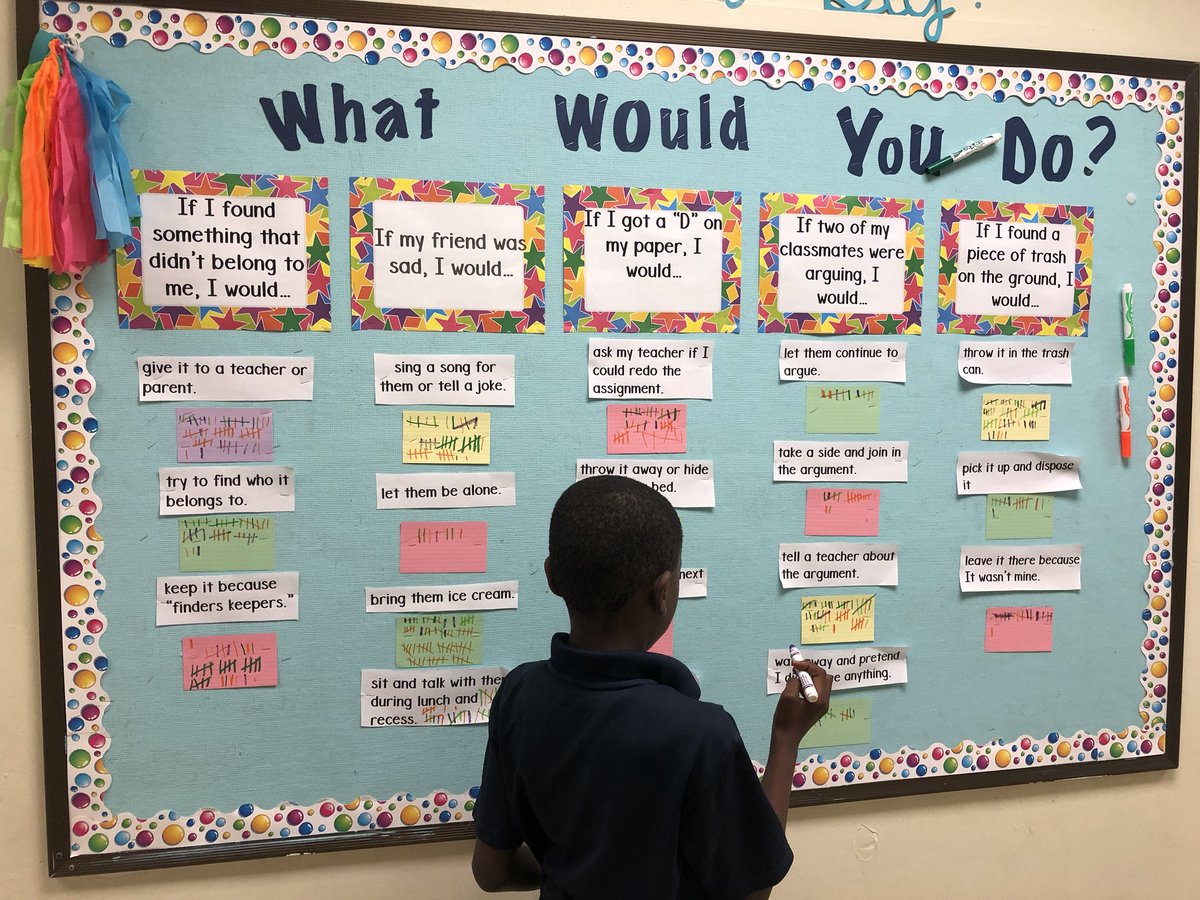 What Would You Do?
If I found
something that
didn't belong to
me, I would...
give it to a teacher or
parent.
try to find who it
belongs to.
keep it because
"finders keepers."
If my friend was
sad, I would...
sing a song for
them or tell a joke.
let them be alone.
bring them ice cream.
sit and talk with them
during lunch and
recess.
If I got a "D" on
my paper, I
would...
ask my teacher if I
could redo the
assignment.
throw it away or hide
bed.
next
If two of my
classmates were
arguing, I
would...
let them continue to
argue.
take a side and join in
the argument.
tell a teacher about
the argument.
away and pretend
I anything.
If I found a
piece of trash
on the ground, I
would...
throw it in the trash
can.
pick it up and dispose
it
leave it there because
It wasn't mine.